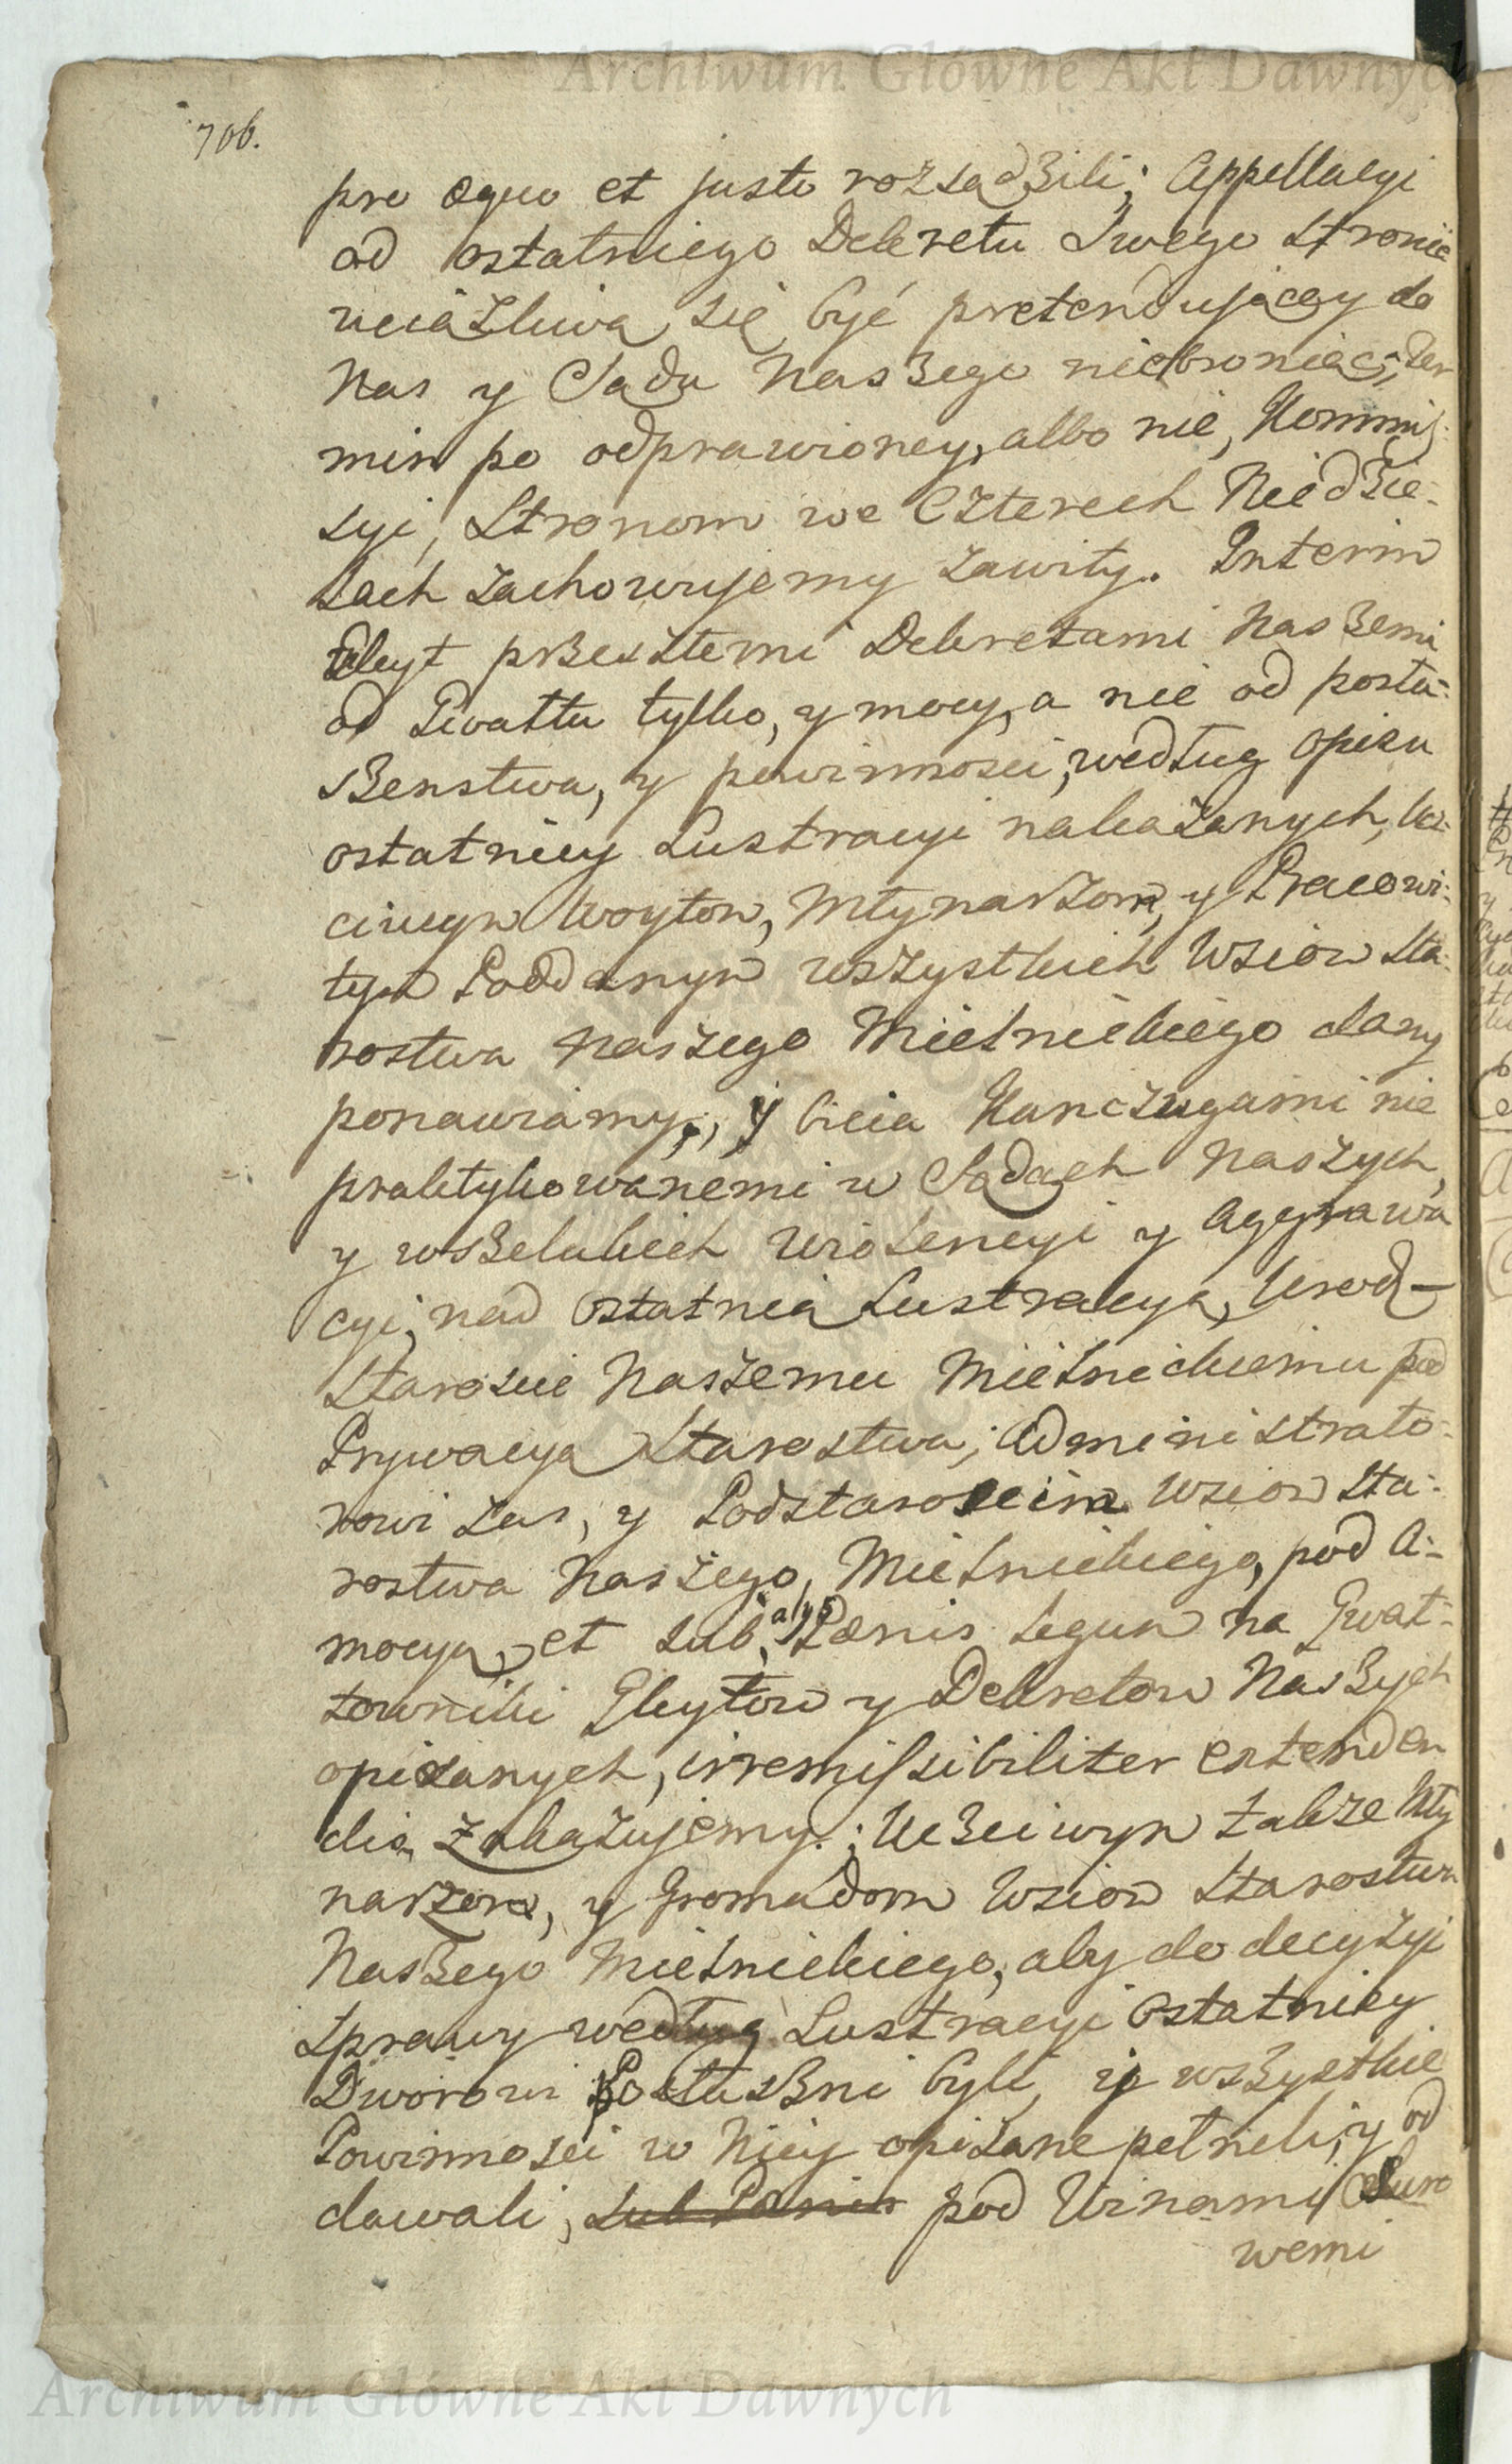 Archiwum Główne Akt Dawnych
706.
pro æquo et justo rozsądzili; Appellacyi
od ostatniego Dekretu Swego Stronie
uciążliwą się być pretendującey do
Nas y Sądu Naszego niebroniąc; Ter
min po odprawioney, albo nie, Kommis-
syi, Stronom we Czterech Niedzie-
lach zachowujemy zawity. Interim
Gleyt przeszłemi Dekretami Naszemi
od Gwałtu tylko, y mocy, a nie od posłu-
szenstwa, y powinnosci, według opisu
ostatniey Lustracyi nakazanych, Ucz-
ciwym Woytom, Młynarzom, y Pracowi-
tym Poddanym wszystkich Wsiow Sta-
rostwa Naszego Mielnickiego dany
ponawiamy; y bicia Kanczugami nie
praktykowanemi w Sądach Naszych,
y wszelakich wiolencyi y Aggrawa
cyi, nad ostatnią Lustracyą, Urod-
Staroscie Naszemu Mielnickiemu pod
Prywacyą Starostwa; Administrato-
rowi zas, y Podstaroscim Wsiow Sta-
rostwa Naszego, Mielnickiego, pod A-
mocyą, et sub alys Pœnis legum na Gwał-
towniki Gleytow y Dekretow Naszych
opisanych, irremissibiliter extenden
dis, zakazujemy.; Uczciwym także Mły
narzom, y Gromadom Wsiow Starostwa
Naszego Mielnickiego, aby do decyzyi
Sprawy według Lustracyi Ostatniey
Dworowi Posłuszni byli, y wszystkie
Powinnosci w Niey opisane pełnili, y od
dawali, sub Pœnis pod Winami Suro
wemi
Archiwum Główne Akt Dawnych